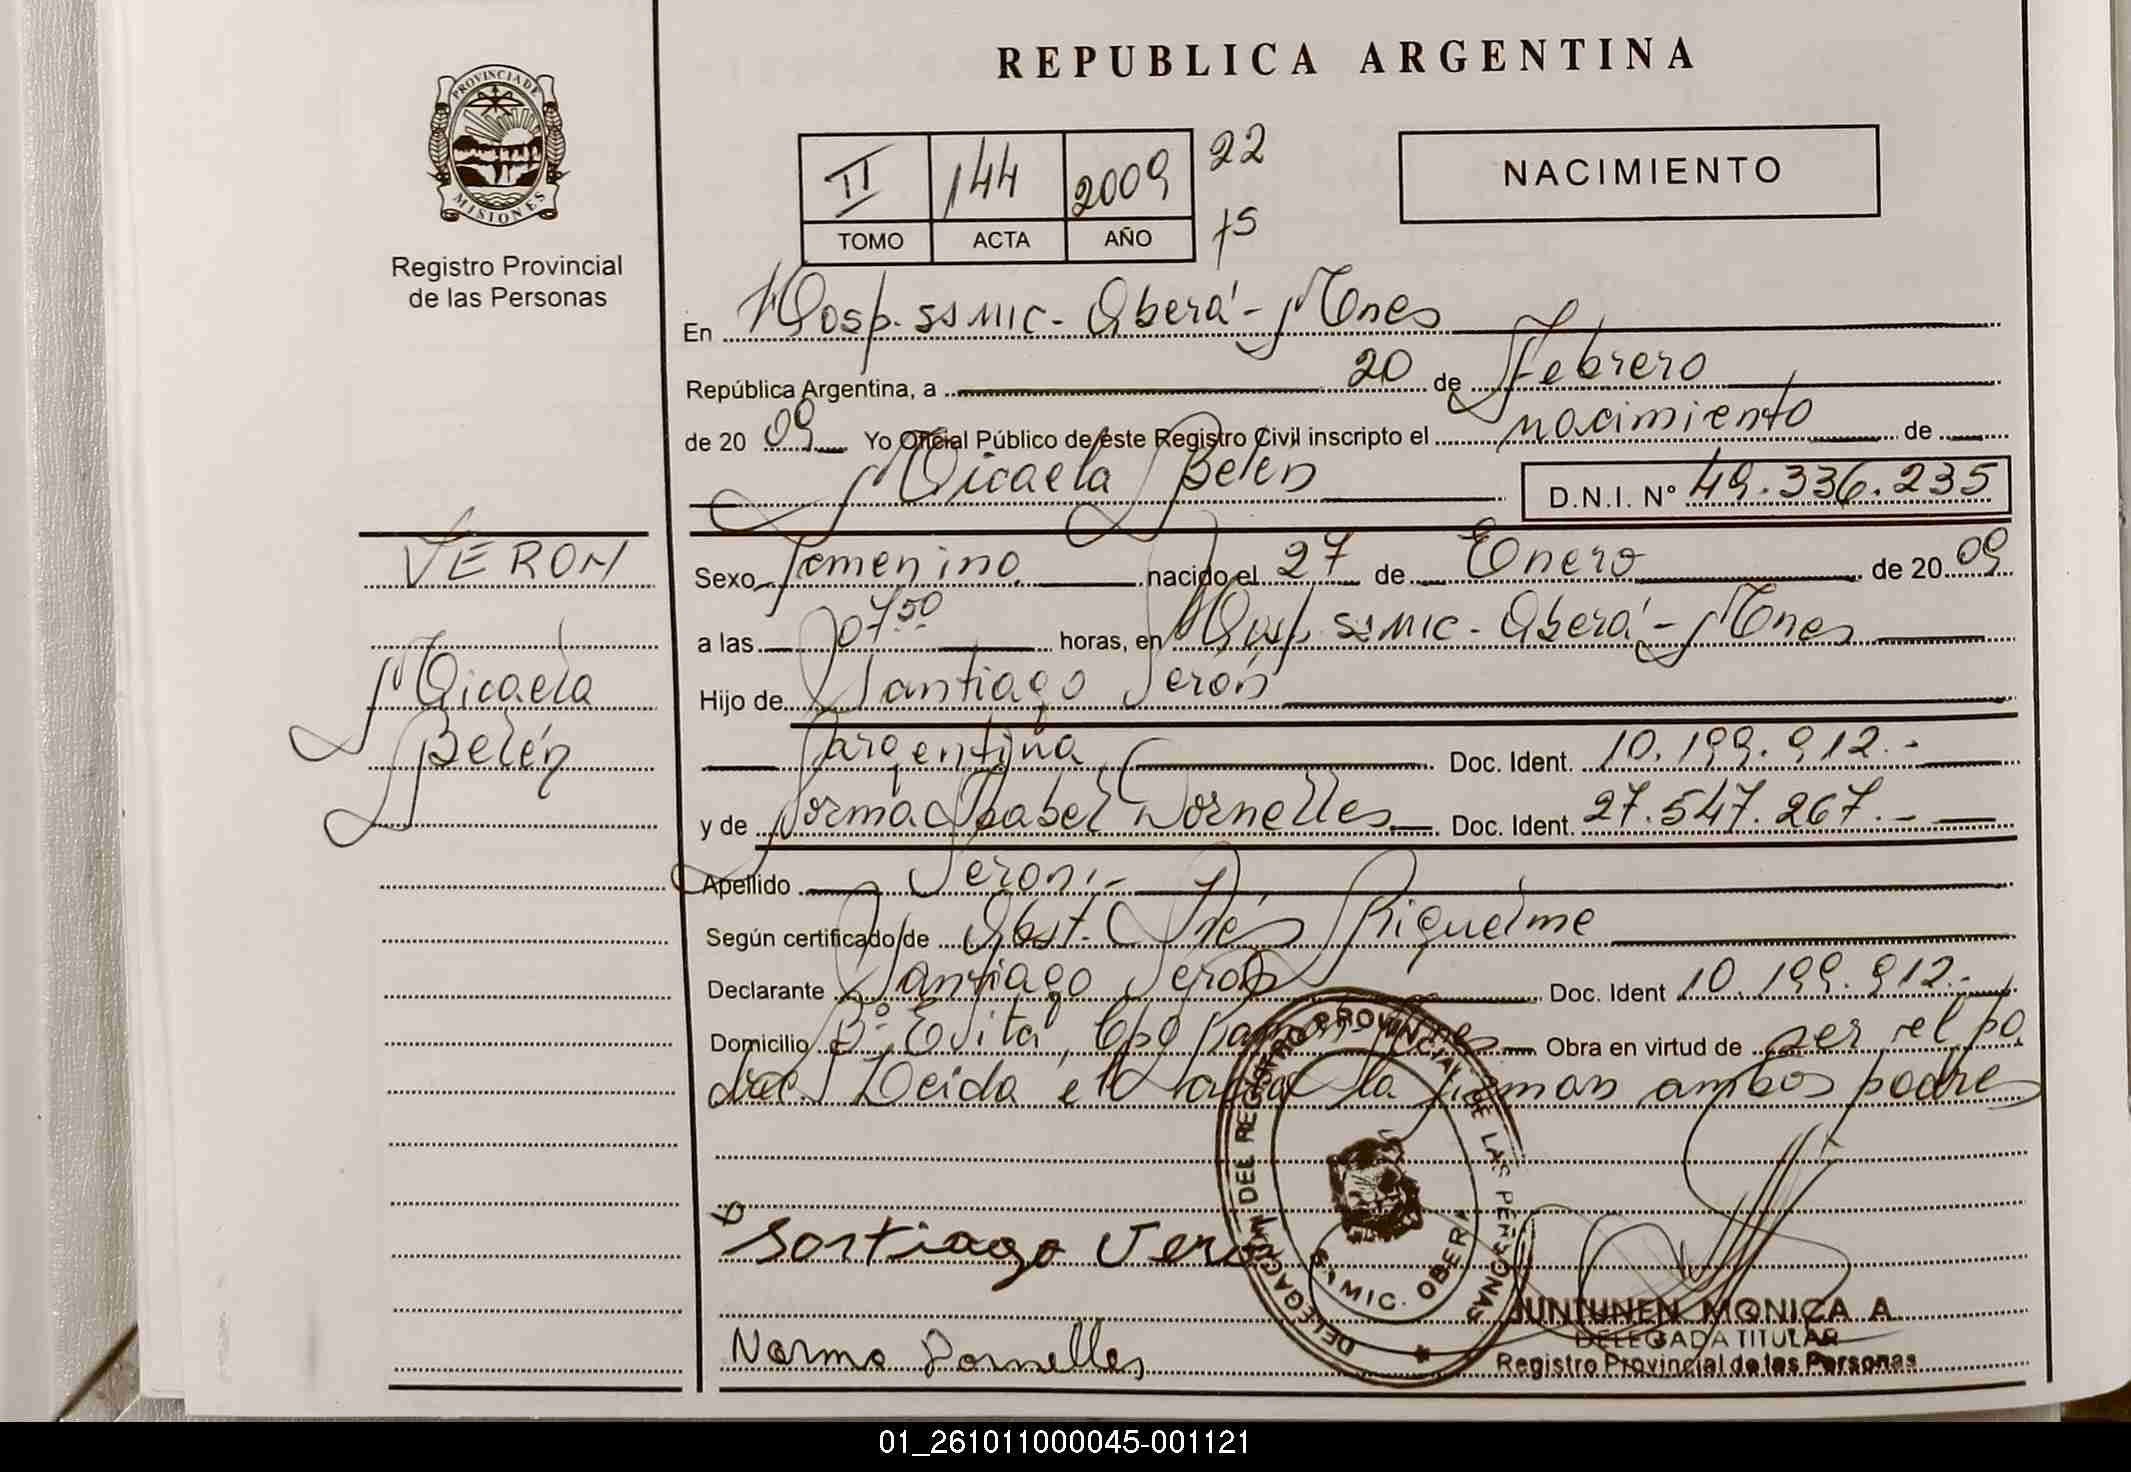 REPUBLICA ARGENTINA
PROVINCIA DE MISIONES
Registro Provincial
de las Personas
II 144 2009 22
TOMO ACTA AÑO 15
NACIMIENTO
En Hosp. SSMIC - Oberá - Mnes
República Argentina, a 20 de Febrero
de 20 09 Yo Oficial Público de éste Registro Civil inscripto el nacimiento de
Micaela Belén D.N.I. Nº 49.336.235
VERON
Micaela
Belén
Sexo femenino nacido el 27 de Enero de 20 09
a las 07 50 horas, en Hosp. SSMIC - Oberá - Mnes
Hijo de Santiago Verón
argentina Doc. Ident. 10.199.912.-
y de Norma Isabel Dornelles Doc. Ident. 27.547.267.-
Apellido Verón.-
Según certificado de Obst. Inés Riquelme
Declarante Santiago Verón Doc. Ident 10.199.912.-
Domicilio Bº Evita, Mnes Obra en virtud de ser el pa
dre. Leida el acta la firman ambos padres
Santiago Veron
Norma Dornelles
DELEGACION DEL REGISTRO PROVINCIAL DE LAS PERSONAS
S.S.MIC. OBERA
JUNTUNEN MONICA A
DELEGADA TITULAR
Registro Provincial de las Personas
01_261011000045-001121